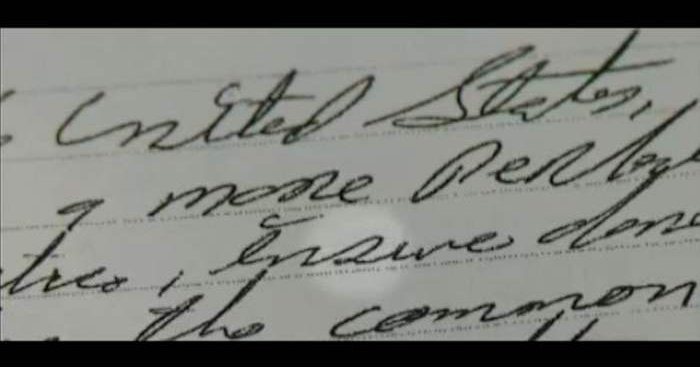 United States,
a more Perfe
tice, insure dome
the common